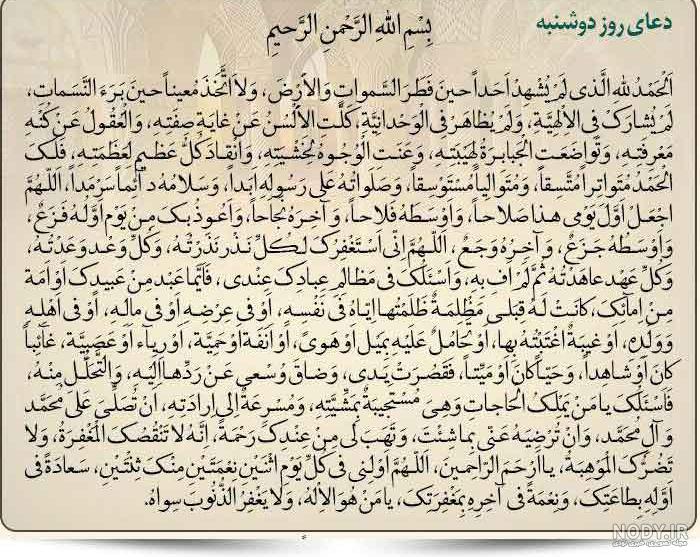 دعای روز دوشنبه
بِسْمِ اللهِ الرَّحْمنِ الرَّحيمِ
اَلْحَمْدُ للهِ الَّذى لَمْ يُشْهِدْ اَحَداً حينَ فَطَرَ السَّمواتِ وَالاَْرْضَ، وَلاَ اتَّخَذَ مُعيناً حينَ بَرَءَ النَّسَماتِ،
لَمْ يُشارَکْ فِى الاِْلهِيَّةِ، وَلَمْ يُظاهَرْ فِى الْوَحْدانِيَّةِ، کَلَّتِ الاَْلْسُنُ عَنْ غايَةِ صِفَتِهِ، وَالْعُقُولُ عَنْ کُنْهِ
مَعْرِفَتِهِ، وَتَواضَعَتِ الْجَبابِرَةُ لِهَيْبَتِهِ، وَعَنَتِ الْوُجُوهُ لِخَشْيَتِهِ، وَانْقادَ کُلُّ عَظيم لِعَظَمَتِهِ، فَلَکَ
الْحَمْدُ مُتَواتِراً مُتَّسِقاً، وَمُتَوالِياً مُسْتَوْسِقاً، وَصَلَواتُهُ عَلى رَسُولِهِ اَبَداً، وَسَلامُهُ دآئِماً سَرْمَداً، اَللّهُمَّ
اجْعَلْ اَوَّلَ يَوْمى هذا صَلاحاً، وَاَوْسَطَهُ فَلاحاً، وَآخِرَهُ نَجاحاً، وَاَعُوذُ بِکَ مِنْ يَوْم اَوَّلُهُ فَزَعٌ،
وَاَوْسَطُهُ جَزَعٌ، وَآخِرُهُ وَجَعٌ، اَللّهُمَّ اِنّى اَسْتَغْفِرُکَ لِکُلِّ نَذْر نَذَرْتُهُ، وَکُلِّ وَعْد وَعَدْتُهُ،
وَکُلِّ عَهْد عاهَدْتُهُ ثُمَّ لَمْ اَفِ بِهِ، وَاَسْئَلُکَ فى مَظالِمِ عِبادِکَ عِنْدى، فَاَيُّما عَبْد مِنْ عَبيدِکَ اَوْ اَمَة
مِنْ اِمآئِکَ، کانَتْ لَهُ قِبَلى مَظْلِمَةٌ ظَلَمْتُها اِيّاهُ فى نَفْسِهِ، اَوْ فى عِرْضِهِ اَوْ فى مالِهِ، اَوْ فى اَهْلِهِ
وَوَلَدِهِ، اَوْ غيبَةٌ اغْتَبْتُهُ بِها، اَوْ تَحامُلٌ عَلَيْهِ بِمَيْل اَوْ هَوىً، اَوْ اَنَفَة اَوْ حَمِيَّة، اَوْ رِيآء اَوْ عَصَبِيَّة، غآئِباً
کانَ اَوْ شاهِداً، وَحَيّاً کانَ اَوْ مَيِّتاً، فَقَصُرَتْ يَدى، وَضاقَ وُسْعى عَنْ رَدِّها اِلَيْهِ، وَالْتَّحَلُّلِ مِنْهُ،
فَاَسْئَلُکَ يا مَنْ يَمْلِکُ الْحاجاتِ وَهِىَ مُسْتَجيبَةٌ بِمَشِيَّتِهِ، وَمُسْرِعَةٌ اِلى اِرادَتِهِ، اَنْ تُصَلِّىَ عَلى مُحَمَّد
وَآلِ مُحَمَّد، وَاَنْ تُرْضِيَهُ عَنّى بِما شِئْتَ، وَتَهَبَ لى مِنْ عِنْدِکَ رَحْمَةً، اِنَّهُ لا تَنْقُصُکَ الْمَغْفِرَةُ، وَلا
تَضُرُّکَ الْمَوْهِبَةُ، يا اَرْحَمَ الرّاحِمينَ، اَللّهُمَّ اَوْلِنى فى کُلِّ يَوْمِ اثْنَيْنِ نِعْمَتَيْنِ مِنْکَ ثِنْتَيْنِ، سَعادَةً فى
اَوَّلِهِ بِطاعَتِکَ، وَنِعْمَةً فى آخِرِهِ بِمَغْفِرَتِکَ، يا مَنْ هُوَ الاِْلهُ، وَلا يَغْفِرُ الذُّنُوبَ سِواهُ.
NODY.IR